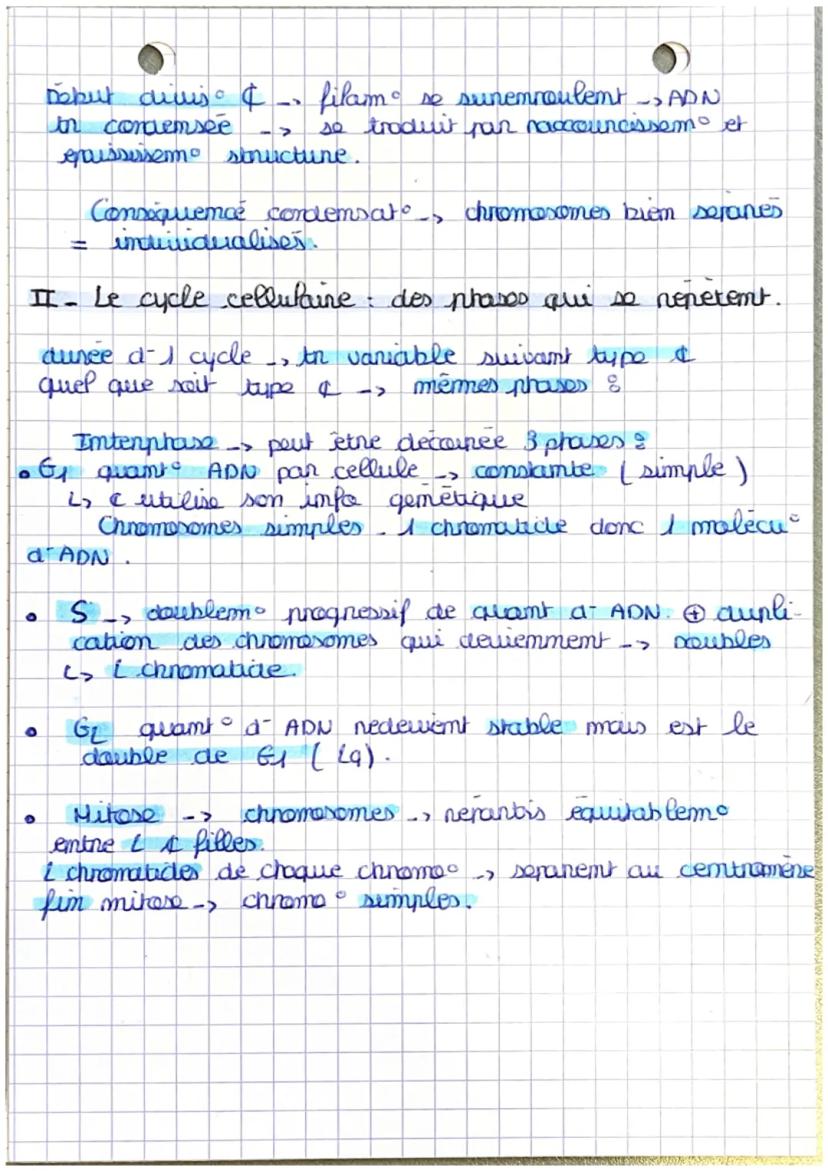 Début divis° ₵ -> filam° se surenroulent -> ADN
tr condensée -> se traduit par raccourcissem° et
épaississem° structure.
Conséquence condensat° -> chromosomes bien séparés
= individualisés.
II - Le cycle cellulaire : des phases qui se répètent.
durée d'1 cycle -> tr variable suivant type ₵
quel que soit type ₵ -> mêmes phases :
Interphase -> peut être découpée 3 phases :
• G1 quant° ADN par cellule -> constante (simple)
↳ ₵ utilise son info génétique
Chromosomes simples. 1 chromatide donc 1 molécu°
d'ADN.
• S -> doublem° progressif de quant d' ADN. ⊕ dupli-
cation des chromosomes qui deviennent -> doubles
↳ 2 chromatide.
• G2 quant° d' ADN redevient stable mais est le
double de G1 (2q).
• Mitose -> chromosomes -> répartis équitablem°
entre 2 ₵ filles.
2 chromatides de chaque chromo° -> séparent au centromère
fin mitose -> chromo° simples.